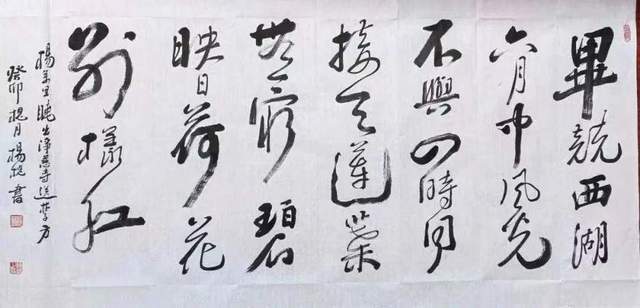 畢競西湖
六月中風光
不與四時同
接天蓮葉
無窮碧
映日荷花
別樣紅
楊萬里曉出淨慈寺送林子方
癸卯槐月楊書